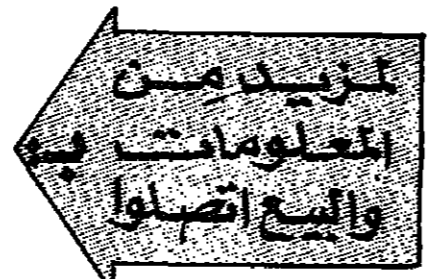 لمزيد من
المعلومات
والبيع اتصلوا بـ